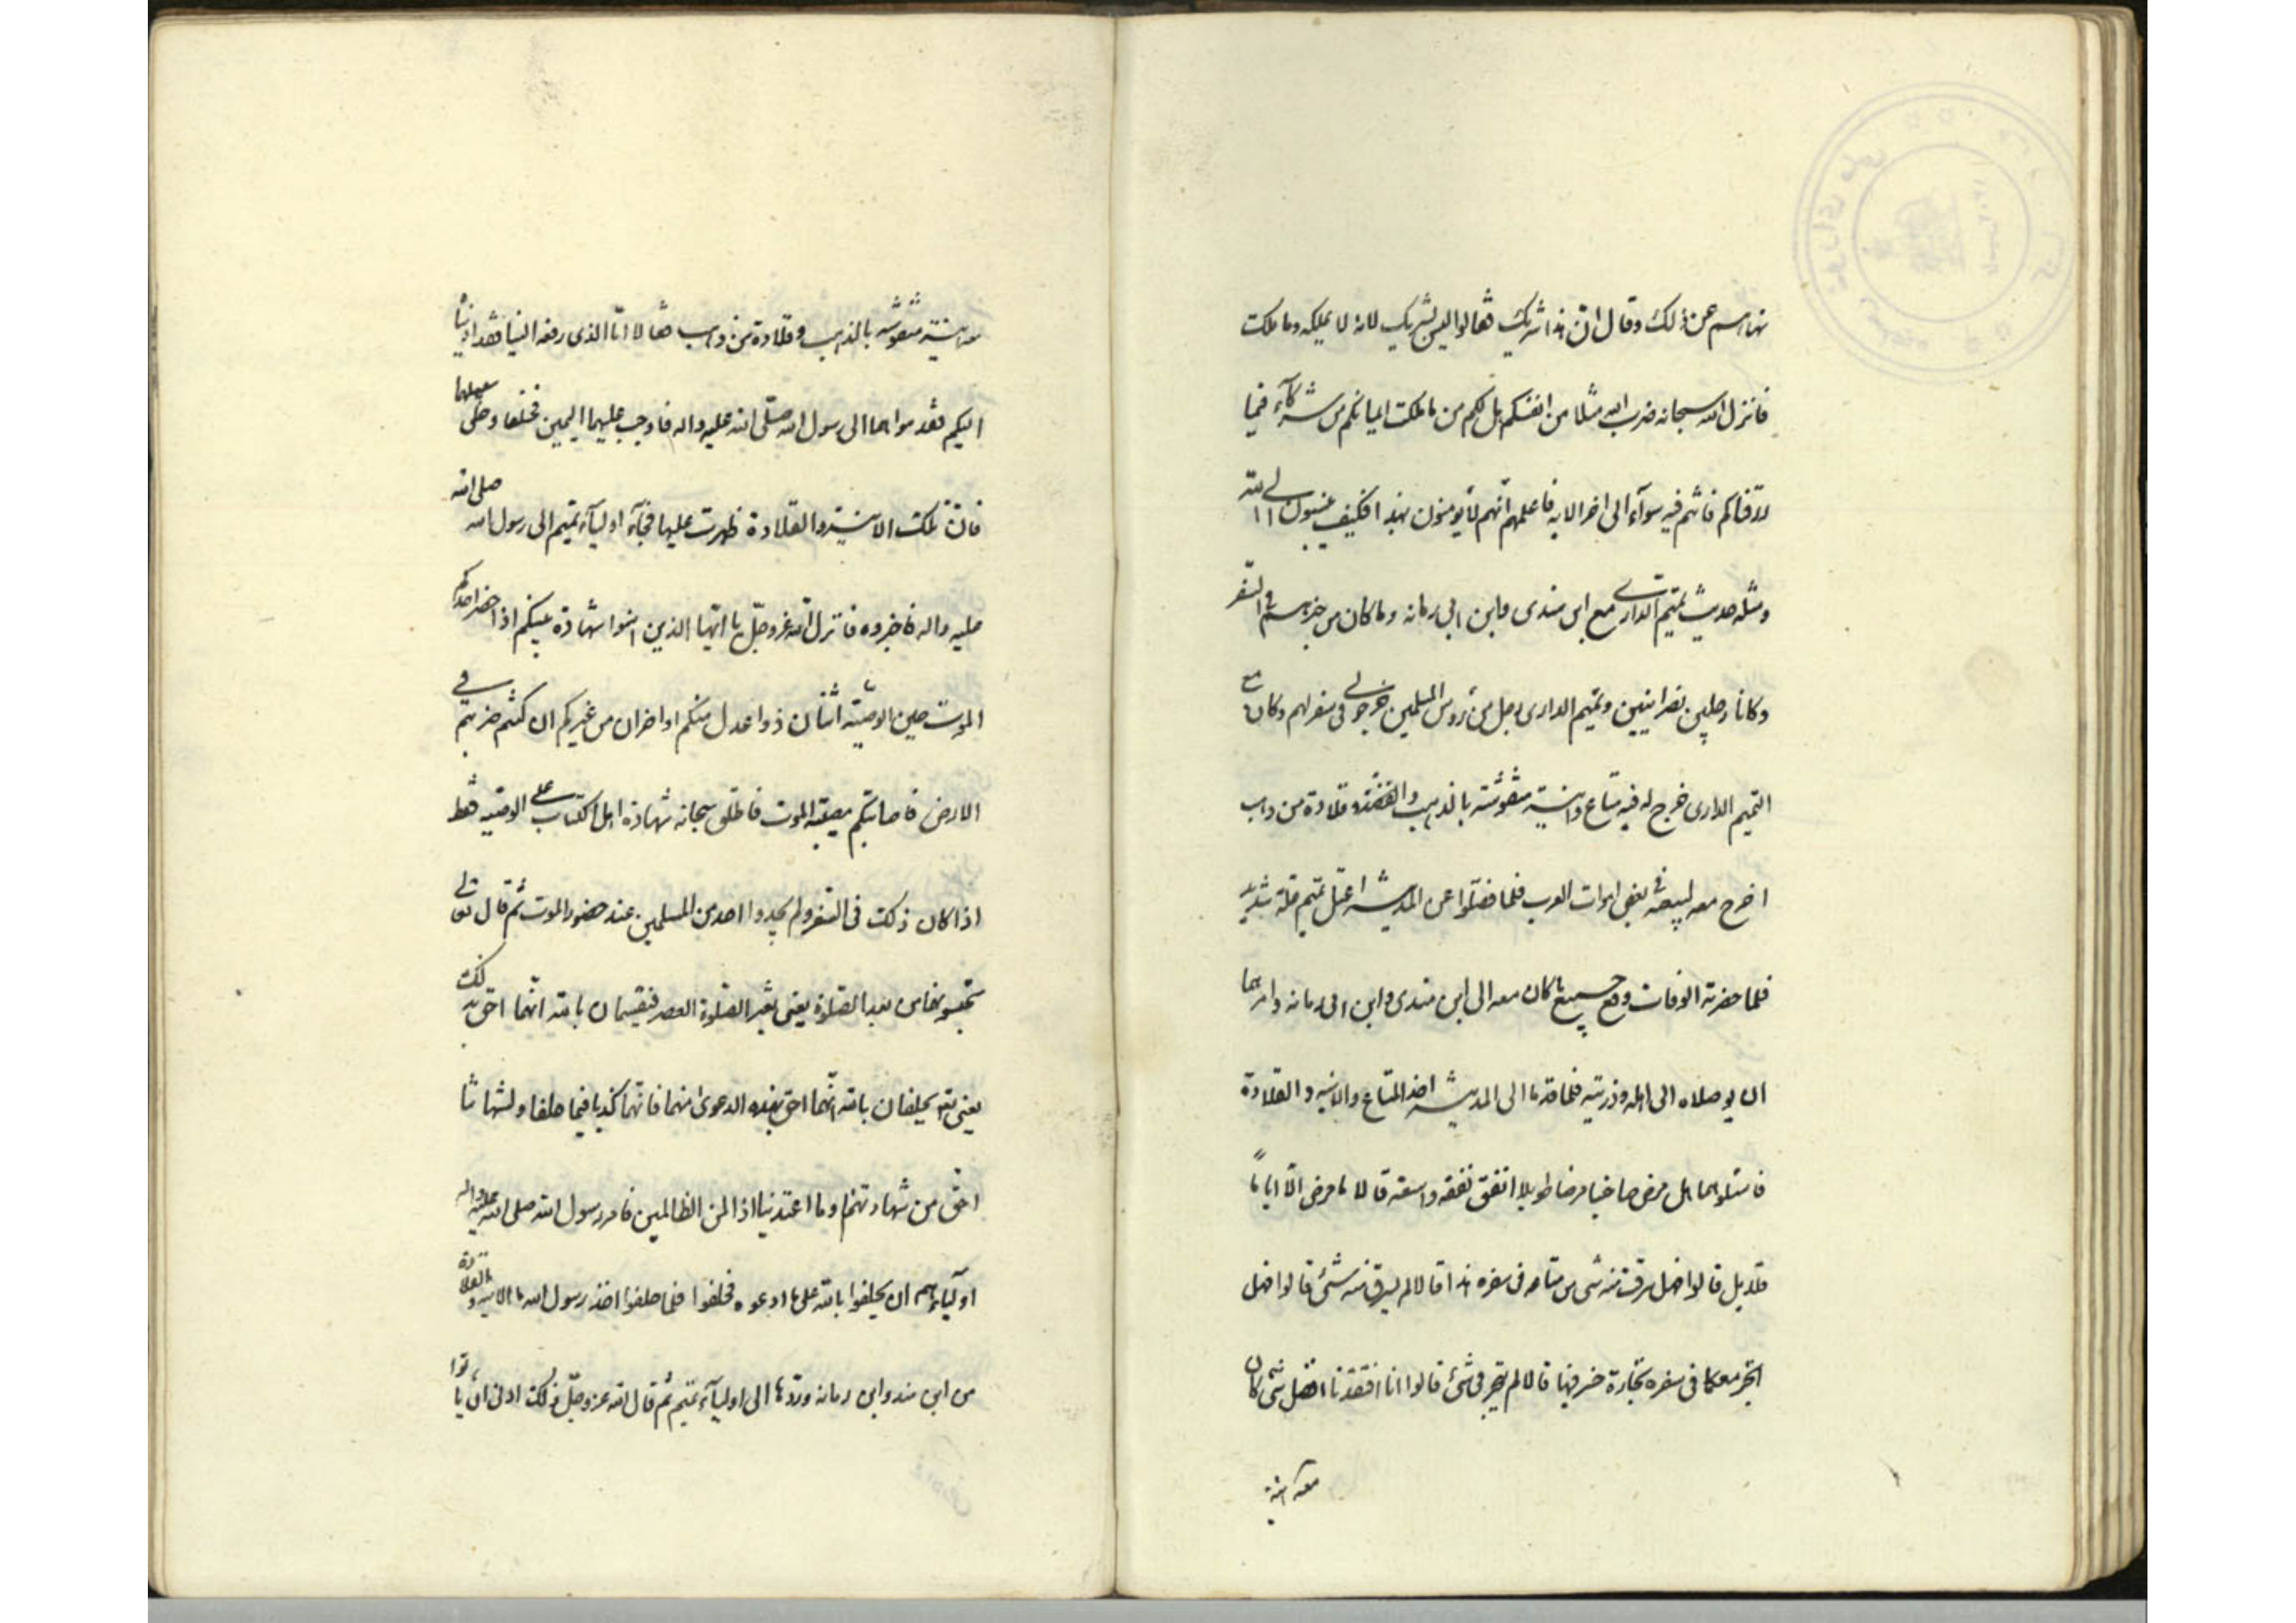 نهاهم عن ذلك وقال ان هذا شريك فقالوا ليس بشريك لانه لا يملكه وما ملكت
فانزل الله سبحانه ضرب الله مثلا من انفسكم هل لكم من ما ملكت ايمانكم من شركآء فيما
رزقناكم فانتم فيه سوآء الى اخر الاية فاعلمهم انهم لا يؤمنون بهذا فكيف ينسبون الى الله
ومثله حديث تميم الدارى مع ابن مندى وابن ابى رمانه وما كان من خبرهم فى السفر
وكانا رجلين نصرانيين وتميم الدارى رجل من رؤس المسلمين خرجوا فى سفر لهم وكان مع
التميم الدارى خرج له فيه متاع وانية منقوشة بالذهب والفضة وقلادة من ذهب
اخرج معه ليبيعه فى بعض اسوات العرب فلما فصلوا عن المدينة اعتل تميم علة شديدة
فلما حضرته الوفات دفع جميع ما كان معه الى ابن مندى وابن ابى رمانه وامرهما
ان يوصلاه الى اهله وذريته فلما قدما الى المدينة اخذ المتاع والانيه والقلادة
فاسئلوهما هل مرض صاحبنا مرضا طويلا انفق نفقه واسعة قالا ما مرض الا اياما
قلايل قالوا فهل سرقت منه شى من متاعه فى سفره هذا قالا لم يسرق منه شئ قالوا فهل
اتجر معكما فى سفره تجارة خسر فيها قالا لم يتجر فى شئ قالوا انا افتقدنا افضل شئ كان
معه انية
معه انية منقوشه بالذهب وقلادة من ذهب فقالا انا الذى دفعه الينا فقد اديناه
اليكم فقدموا هما الى رسول الله صلى الله عليه واله فاوجب عليهما اليمين فحلفا وخلى سبيلهما
فان تلك الانية والقلادة ظهرت عليهما فجآء اوليآء تميم الى رسول الله صلى الله
عليه واله فاخبروه فانزل الله عزوجل يا ايها الذين امنوا شهادة بينكم اذا حضر احدكم
الموت حين الوصية اثنان ذوا عدل منكم او اخران من غيركم ان كنتم ضربتم فى
الارض فاصابتكم مصيبة الموت فاطلق سبحانه شهادة اهل الكتاب على الوصيه فقط
اذا كان ذلك فى السفر ولم يجدوا احد من المسلمين عند حضور الموت ثم قال تعالى
تحبسونهما من بعد الصلوة يعنى بعد الصلوة العصر فيقسمان بالله انهما احق بذلك
يعنى يحلفان بالله انهما احق بهذه الدعوى منهما فانهما كذبا فيما حلفا ولشهادتنا
احق من شهادتهما وما اعتدينا اذا لمن الظالمين فامر رسول الله صلى الله عليه واله
اوليآءهم ان يحلفوا بالله على ما ادعوه فحلفوا فلما حلفوا اخذ رسول الله الانيه والقلادة
من ابن مندو وابن رمانه وردها الى اوليآء تميم ثم قال الله عزوجل ذلك ادنى ان ياتوا